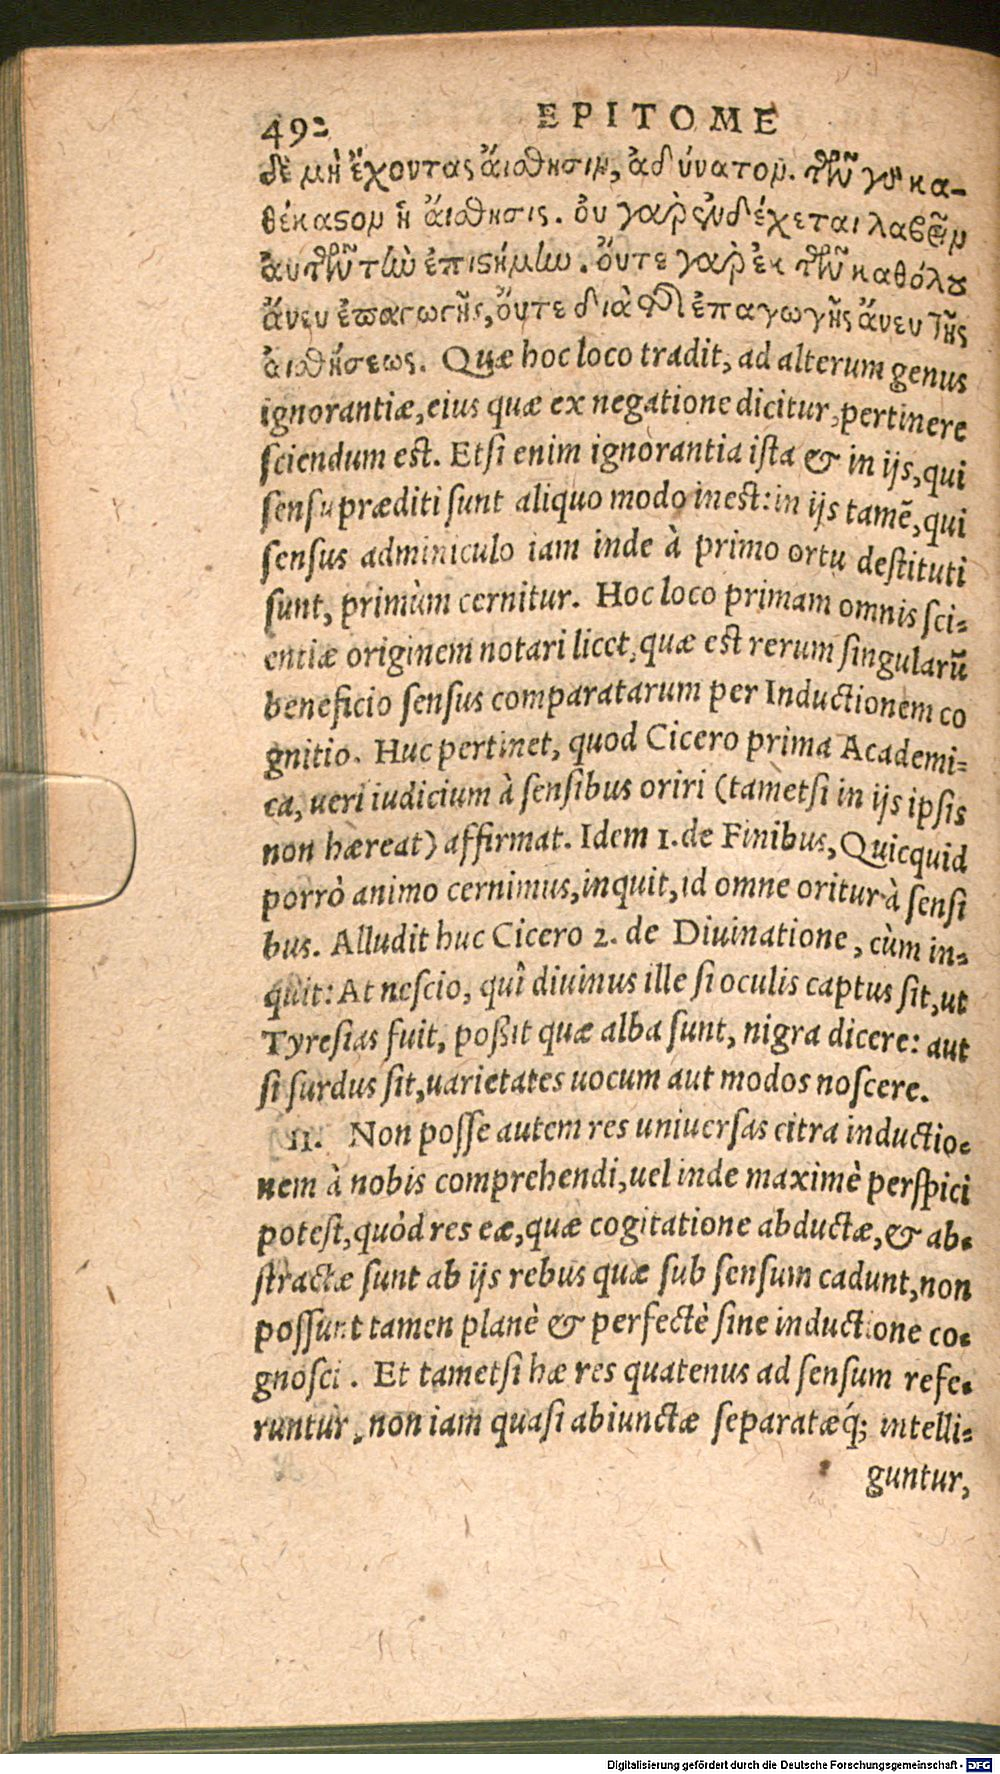 492 EPITOME
δὲ μὴ ἔχοντας ἄισθησιν, ἀδύνατον. τῶν γὰρ κα-
θέκαστον ἡ ἄισθησις. ὀυ γαρ ἐνδέχεται λαβεῖν
ἀυτῶν τὴν ἐπιστήμην. ὄυτε γαρ ἐκ τῶν καθόλου
ἄνευ ἐπαγωγῆς, ὄυτε διὰ τῆς ἐπαγωγῆς ἄνευ τῆς
ἀισθήσεως. Quæ hoc loco tradit, ad alterum genus
ignorantiæ, eius quæ ex negatione dicitur, pertinere
sciendum est. Etsi enim ignorantia ista & in ijs, qui
sensu præditi sunt aliquo modo inest: in ijs tamē, qui
sensus adminiculo iam inde à primo ortu destituti
sunt, primùm cernitur. Hoc loco primam omnis sci-
entiæ originem notari licet, quæ est rerum singularū
beneficio sensus comparatarum per Inductionem co
gnitio. Huc pertinet, quod Cicero prima Academi-
ca, ueri iudicium à sensibus oriri (tametsi in ijs ipsis
non hæreat) affirmat. Idem 1. de Finibus, Quicquid
porrò animo cernimus, inquit, id omne oritur à sensi
bus. Alludit huc Cicero 2. de Diuinatione, cùm in-
quit: At nescio, quî diuinus ille si oculis captus sit, ut
Tyresias fuit, poßit quæ alba sunt, nigra dicere: aut
si surdus sit, uarietates uocum aut modos noscere.
11. Non posse autem res uniuersas citra inductio-
nem à nobis comprehendi, uel inde maximè perspici
potest, quòd res eæ, quæ cogitatione abductæ, & ab-
stractæ sunt ab ijs rebus quæ sub sensum cadunt, non
possunt tamen planè & perfectè sine inductione co-
gnosci. Et tametsi hæ res quatenus ad sensum refe-
runtur, non iam quasi abiunctæ separatæq́; intelli-
guntur,
Digitalisierung gefördert durch die Deutsche Forschungsgemeinschaft - DFG